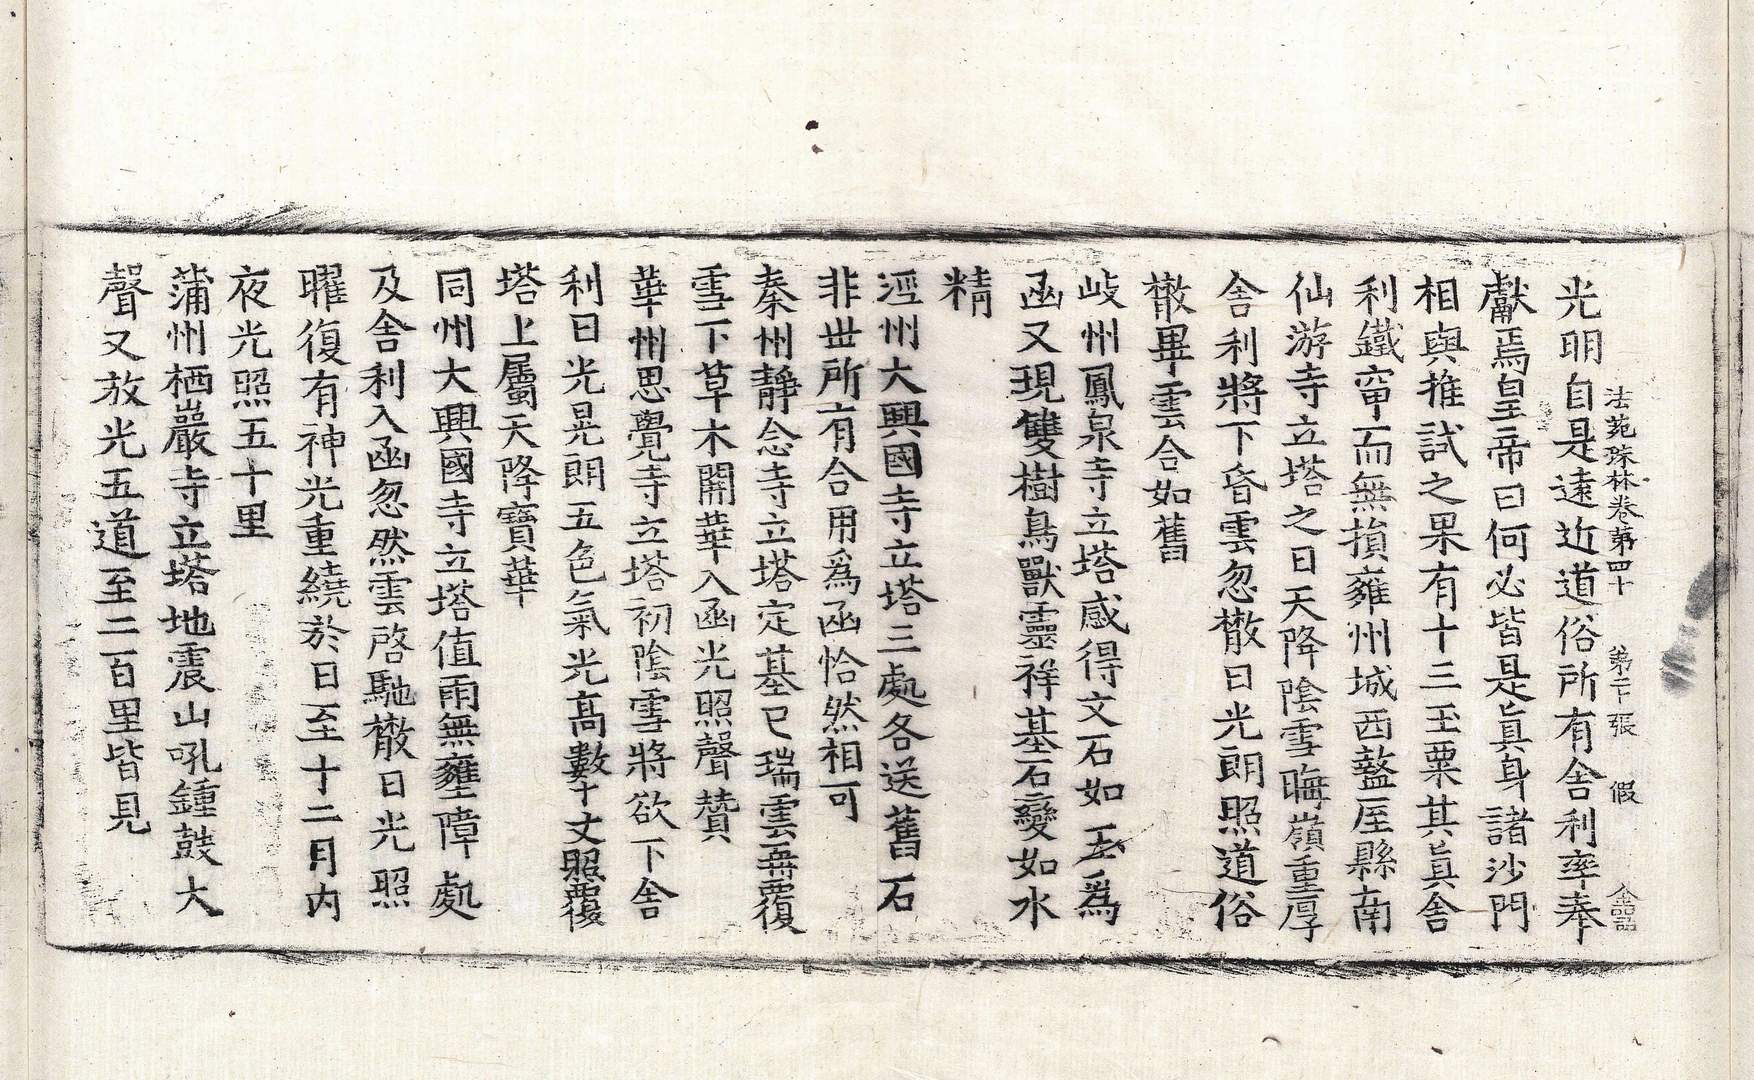 法苑珠林卷第四十 第二十張 假
光明自是遠近道俗所有舍利率奉
獻焉皇帝曰何必皆是眞身諸沙門
相與推試之果有十三玉粟其眞舍
利鐵窜而無損雍州城西盩厔縣南
仙游寺立塔之日天降陰雪晦嶺重厚
舍利將下昏雲忽撒日光朗照道俗
撒畢雲合如舊
岐州鳳泉寺立塔感得文石如玉爲
函又現雙樹鳥獸靈祥基石變如水
精
涇州大興國寺立塔三處各送舊石
非世所有合用爲函恰然相可
秦州靜念寺立塔定基已瑞雲再覆
雪下草木開華入函光照聲贊
華州思覺寺立塔初陰雪將欲下舍
利日光晃朗五色氣光高數十丈照覆
塔上屬天降寶華
同州大興國寺立塔值雨無壅障處
及舍利入函忽然雲啓馳撒日光照
曜復有神光重繞於日至十二月內
夜光照五十里
蒲州栖巖寺立塔地震山吼鍾鼓大
聲又放光五道至二百里皆見